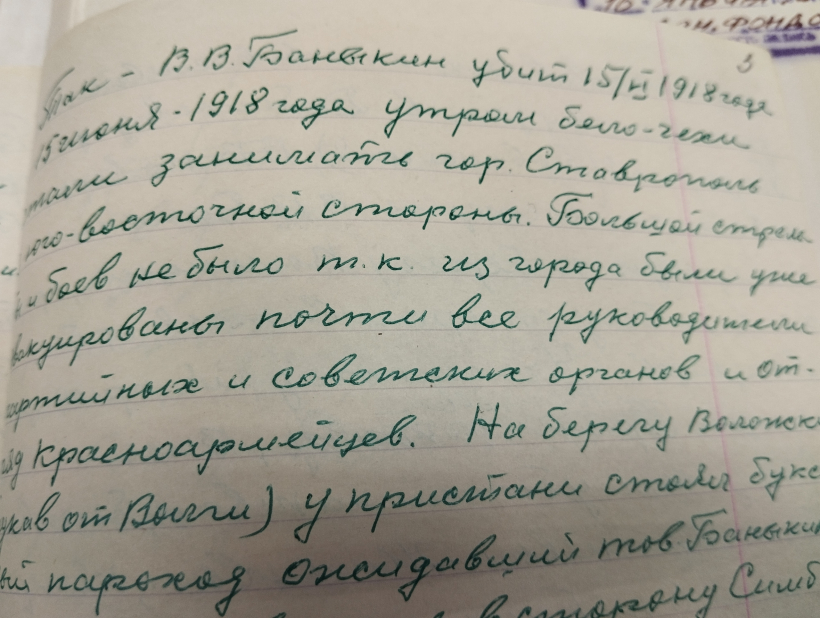 10.
ФОНДО
3
Так - В.В. Баныкин убит 15/VI 1918 года
15 июня - 1918 года утром бело-чехи
стали занимать гор. Ставрополь
юго-восточной стороны. Большой стрель
и боев не было т.к. из города были уже
вакуированы почти все руководители
партийных и советских органов и от-
ряд красноармейцев. На берегу Воложк
рукав от Волги) у пристани стоял букс
ый пароход ожидавший тов. Баныкин
сторону Симб